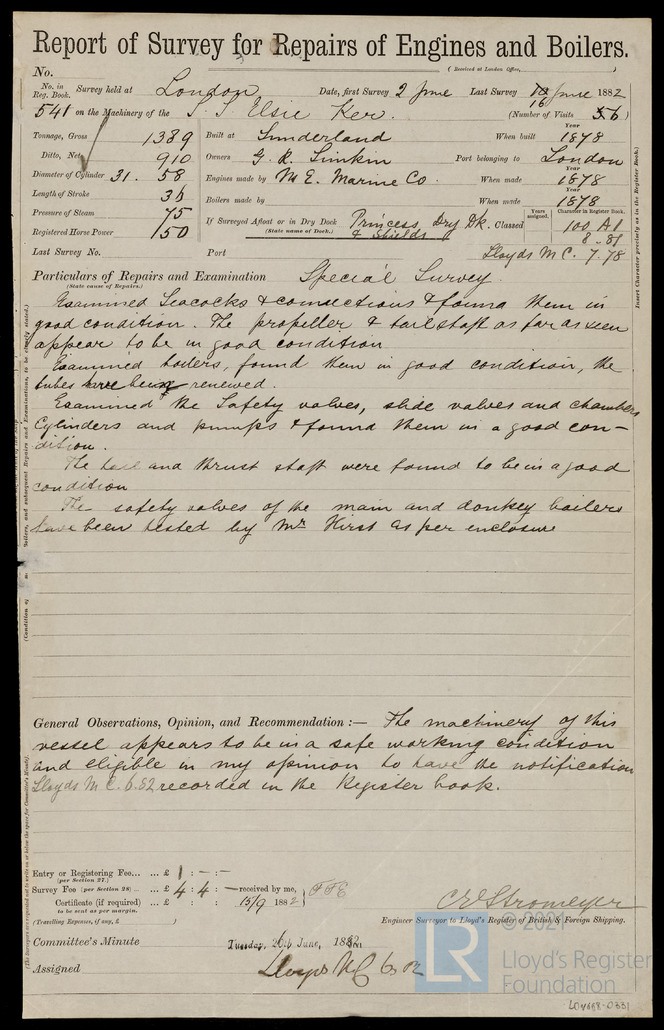 Report of Survey for Repairs of Engines and Boilers.
No. (Received at London Office, )
No. in Reg. Book. Survey held at London Date, first Survey 2 June Last Survey 16 June 1882
541 on the Machinery of the S.S. Elsie Ker. (Number of Visits 5.6)
Tonnage, Gross 1389 Built at Sunderland When built Year 1878
Ditto, Net 910 Owners G. R. Simkin Port belonging to London
Diameter of Cylinder 31. 58 Engines made by N E. Marine Co. When made Year 1878
Length of Stroke 36 Boilers made by When made Year 1878
Pressure of Steam 75 If Surveyed Afloat or in Dry Dock Princess Dry Dk. Classed Years assigned. Character in Register Book. 100 A1
Registered Horse Power 150 (State name of Dock.) & Shields 8..81
Last Survey No. Port Lloyds M C. 7.78
Particulars of Repairs and Examination Special Survey.
(State cause of Repairs.)
Examined Seacocks & connections & found them in
good condition. The propeller & tail staft as far as seen
appear to be in good condition
Examined boilers, found them in good condition, the
tubes have been renewed.
Examined the Safety valves, slide valves and chambers
Cylinders and pumps & found them in a good con-
dition.
The and thrust staft were found to be in a good
condition
The safety valves of the main and donkey boilers
have been tested by Mr Hirst as per enclosure
General Observations, Opinion, and Recommendation :— The machinery of this
vessel appears to be in a safe working condition
and eligible in my opinion to have the notification
Lloyds M C. 6.82 recorded in the Register book.
Entry or Registering Fee... ... £ 1 : - : -
(per Section 27.)
Survey Fee (per Section 28) ... ... £ 4 : 4 : - received by me,
Certificate (if required) ... : : 15/9 1882
to be sent as per margin.
(Travelling Expenses, if any, £ )
C E Stromeyer
Engineer Surveyor to Lloyd's Register of British & Foreign Shipping.
Committee's Minute Tuesday, 20th June, 1882
Assigned Lloyds M C 6 82
Insert Character precisely as in the Register Book.
© 2021
LR
Lloyd's Register
Foundation